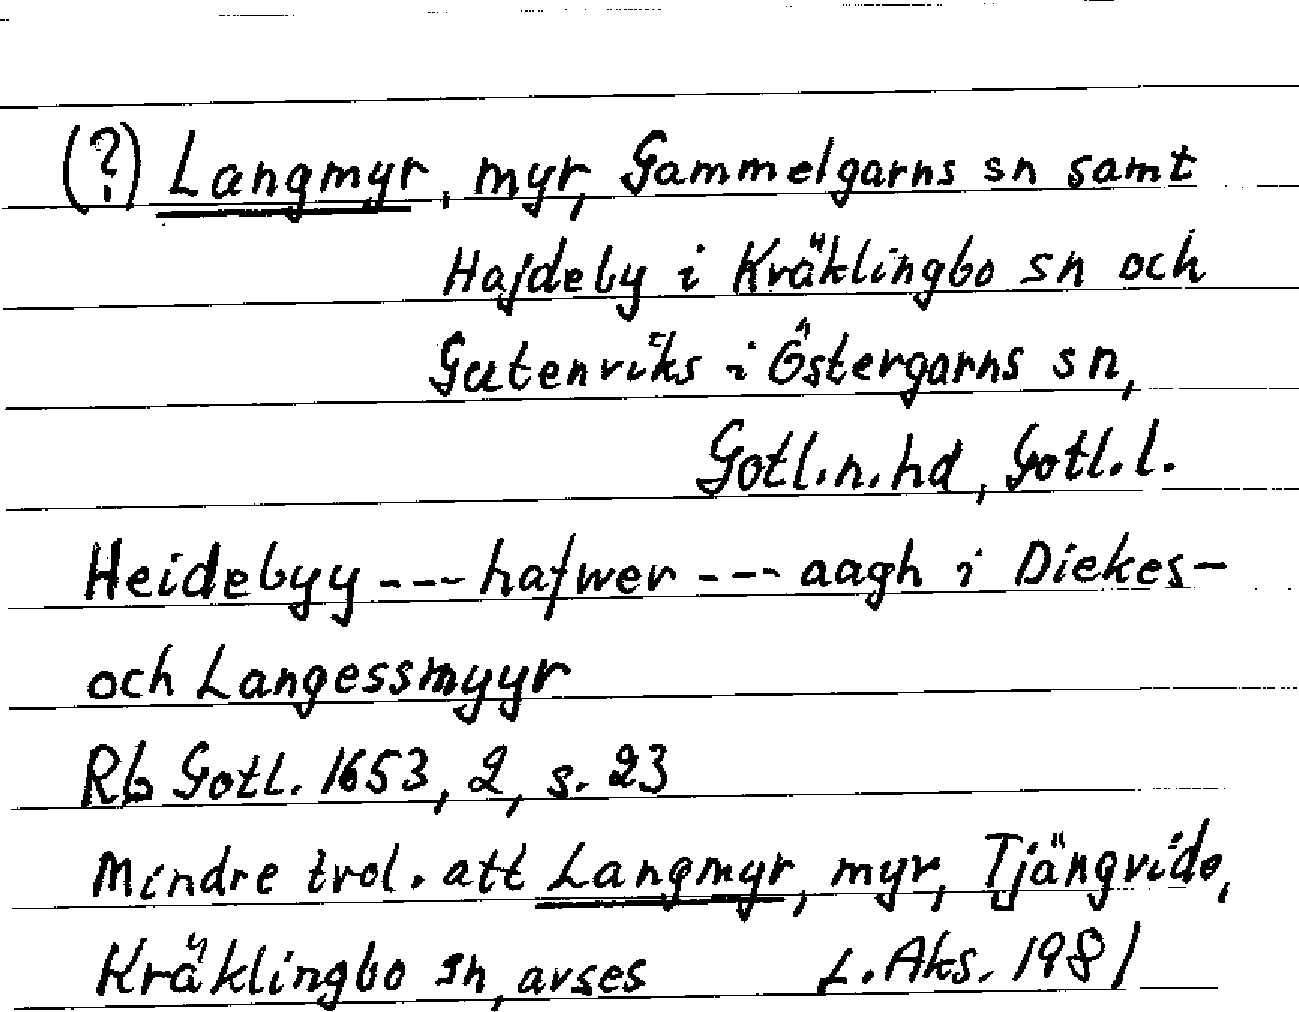 (?) Langmyr, myr, Gammelgarns sn samt
Hajdeby i Kräklingbo sn och
Gutenviks i Östergarns sn,
Gotl.n.hd, Gotl.l.
Heidebyy --- hafwer --- aagh i Diekes-
och Langessmyyr
Rb Gotl. 1653, 2, s. 23
Mindre trol. att Langmyr, myr, Tjängvide,
Kräklingbo sn, avses L. Aks. 1981